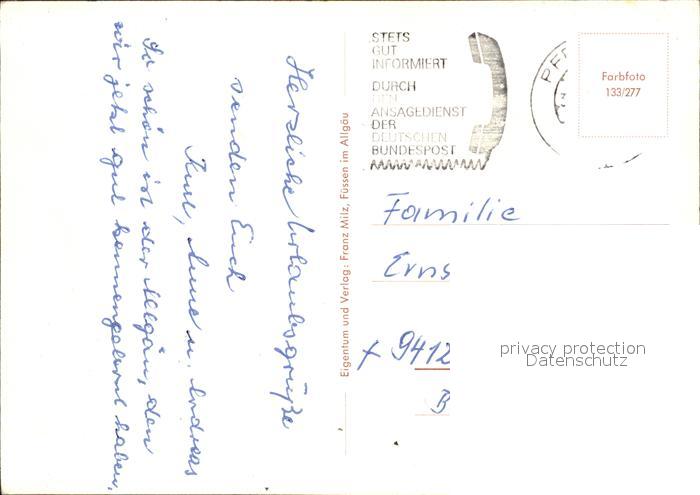 Herzliche Urlaubsgrüße
senden Euch
Kurt, Anne u. Andreas
So schön ist der Allgäu, den
wir jetzt gut kennengelernt haben.
Eigentum und Verlag: Franz Milz, Füssen im Allgäu
STETS
GUT
INFORMIERT
DURCH
DEN
ANSAGEDIENST
DER
DEUTSCHEN
BUNDESPOST
Farbfoto
133/277
Familie
Erns
x 9412
B
privacy protection
Datenschutz